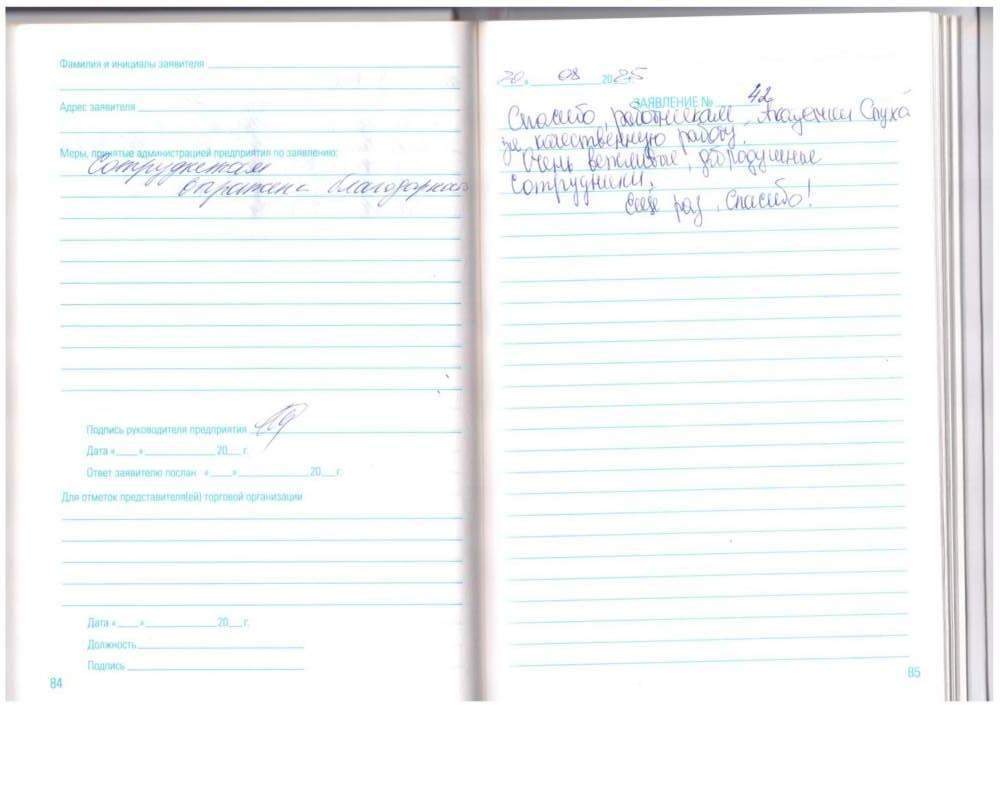 Фамилия и инициалы заявителя
Адрес заявителя
Меры, принятые администрацией предприятия по заявлению:
Сотрудникам
выражена благодарность
Подпись руководителя предприятия
Дата «____»____________20___г.
Ответ заявителю послан «____»____________20___г.
Для отметок представителя(ей) торговой организации
Дата «____»____________20___г.
Должность
Подпись
84
20 08 2025
ЗАЯВЛЕНИЕ № 42
Спасибо, работникам Академии Слуха
за качественную работу.
Очень вежливые, добродушные
сотрудники.
Еще раз Спасибо!
85